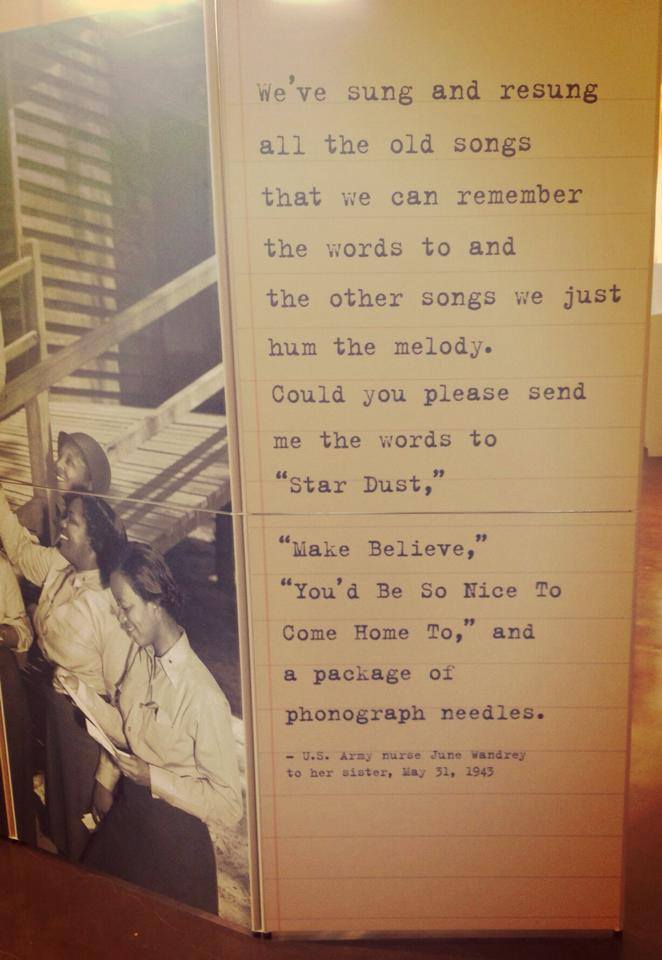 We've sung and resung
all the old songs
that we can remember
the words to and
the other songs we just
hum the melody.
Could you please send
me the words to
“Star Dust,”
“Make Believe,”
“You'd Be So Nice To
Come Home To,” and
a package of
phonograph needles.
– U.S. Army nurse June Wandrey
to her sister, May 31, 1943